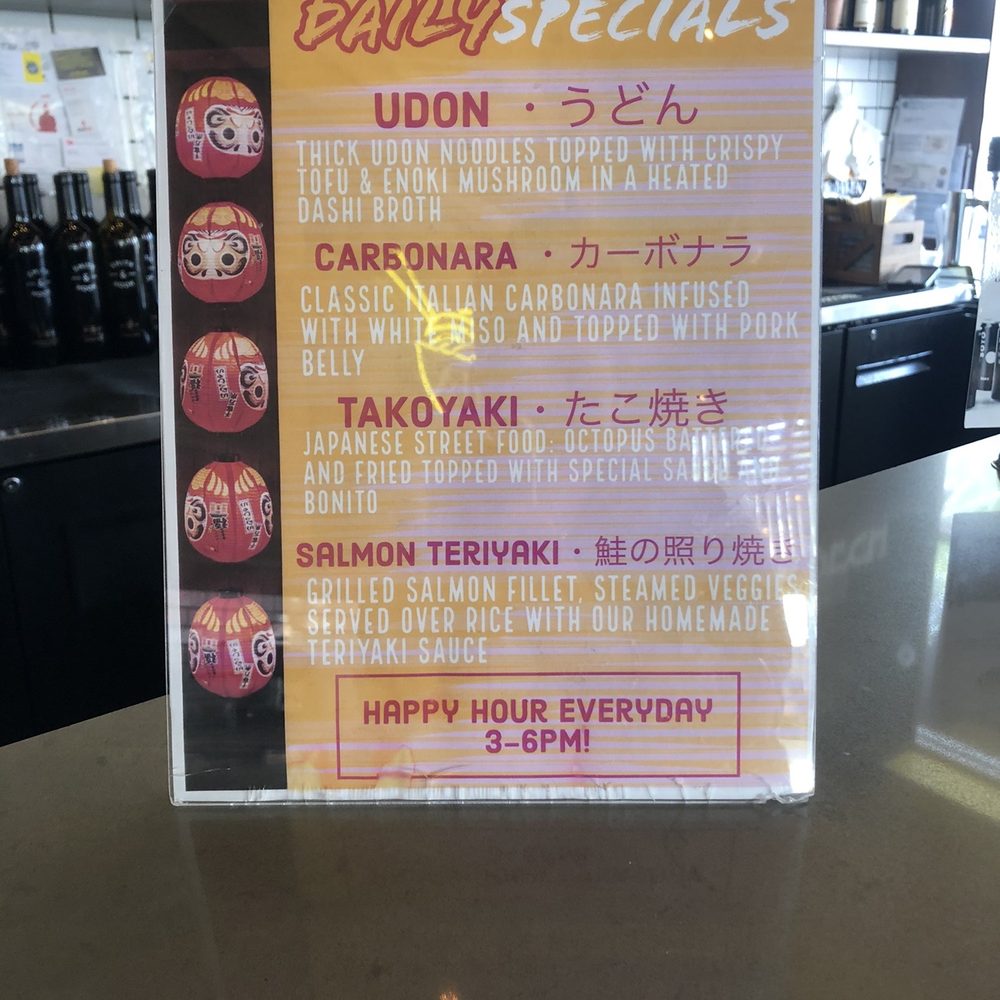 DAILY SPECIALS
UDON ・うどん
THICK UDON NOODLES TOPPED WITH CRISPY
TOFU & ENOKI MUSHROOM IN A HEATED
DASHI BROTH
CARBONARA ・カーボナラ
CLASSIC ITALIAN CARBONARA INFUSED
WITH WHITE MISO AND TOPPED WITH PORK
BELLY
TAKOYAKI・たこ焼き
JAPANESE STREET FOOD: OCTOPUS BATTERED
AND FRIED TOPPED WITH SPECIAL SAUCE AND
BONITO
SALMON TERIYAKI・鮭の照り焼き
GRILLED SALMON FILLET, STEAMED VEGGIES
SERVED OVER RICE WITH OUR HOMEMADE
TERIYAKI SAUCE
HAPPY HOUR EVERYDAY
3-6PM!